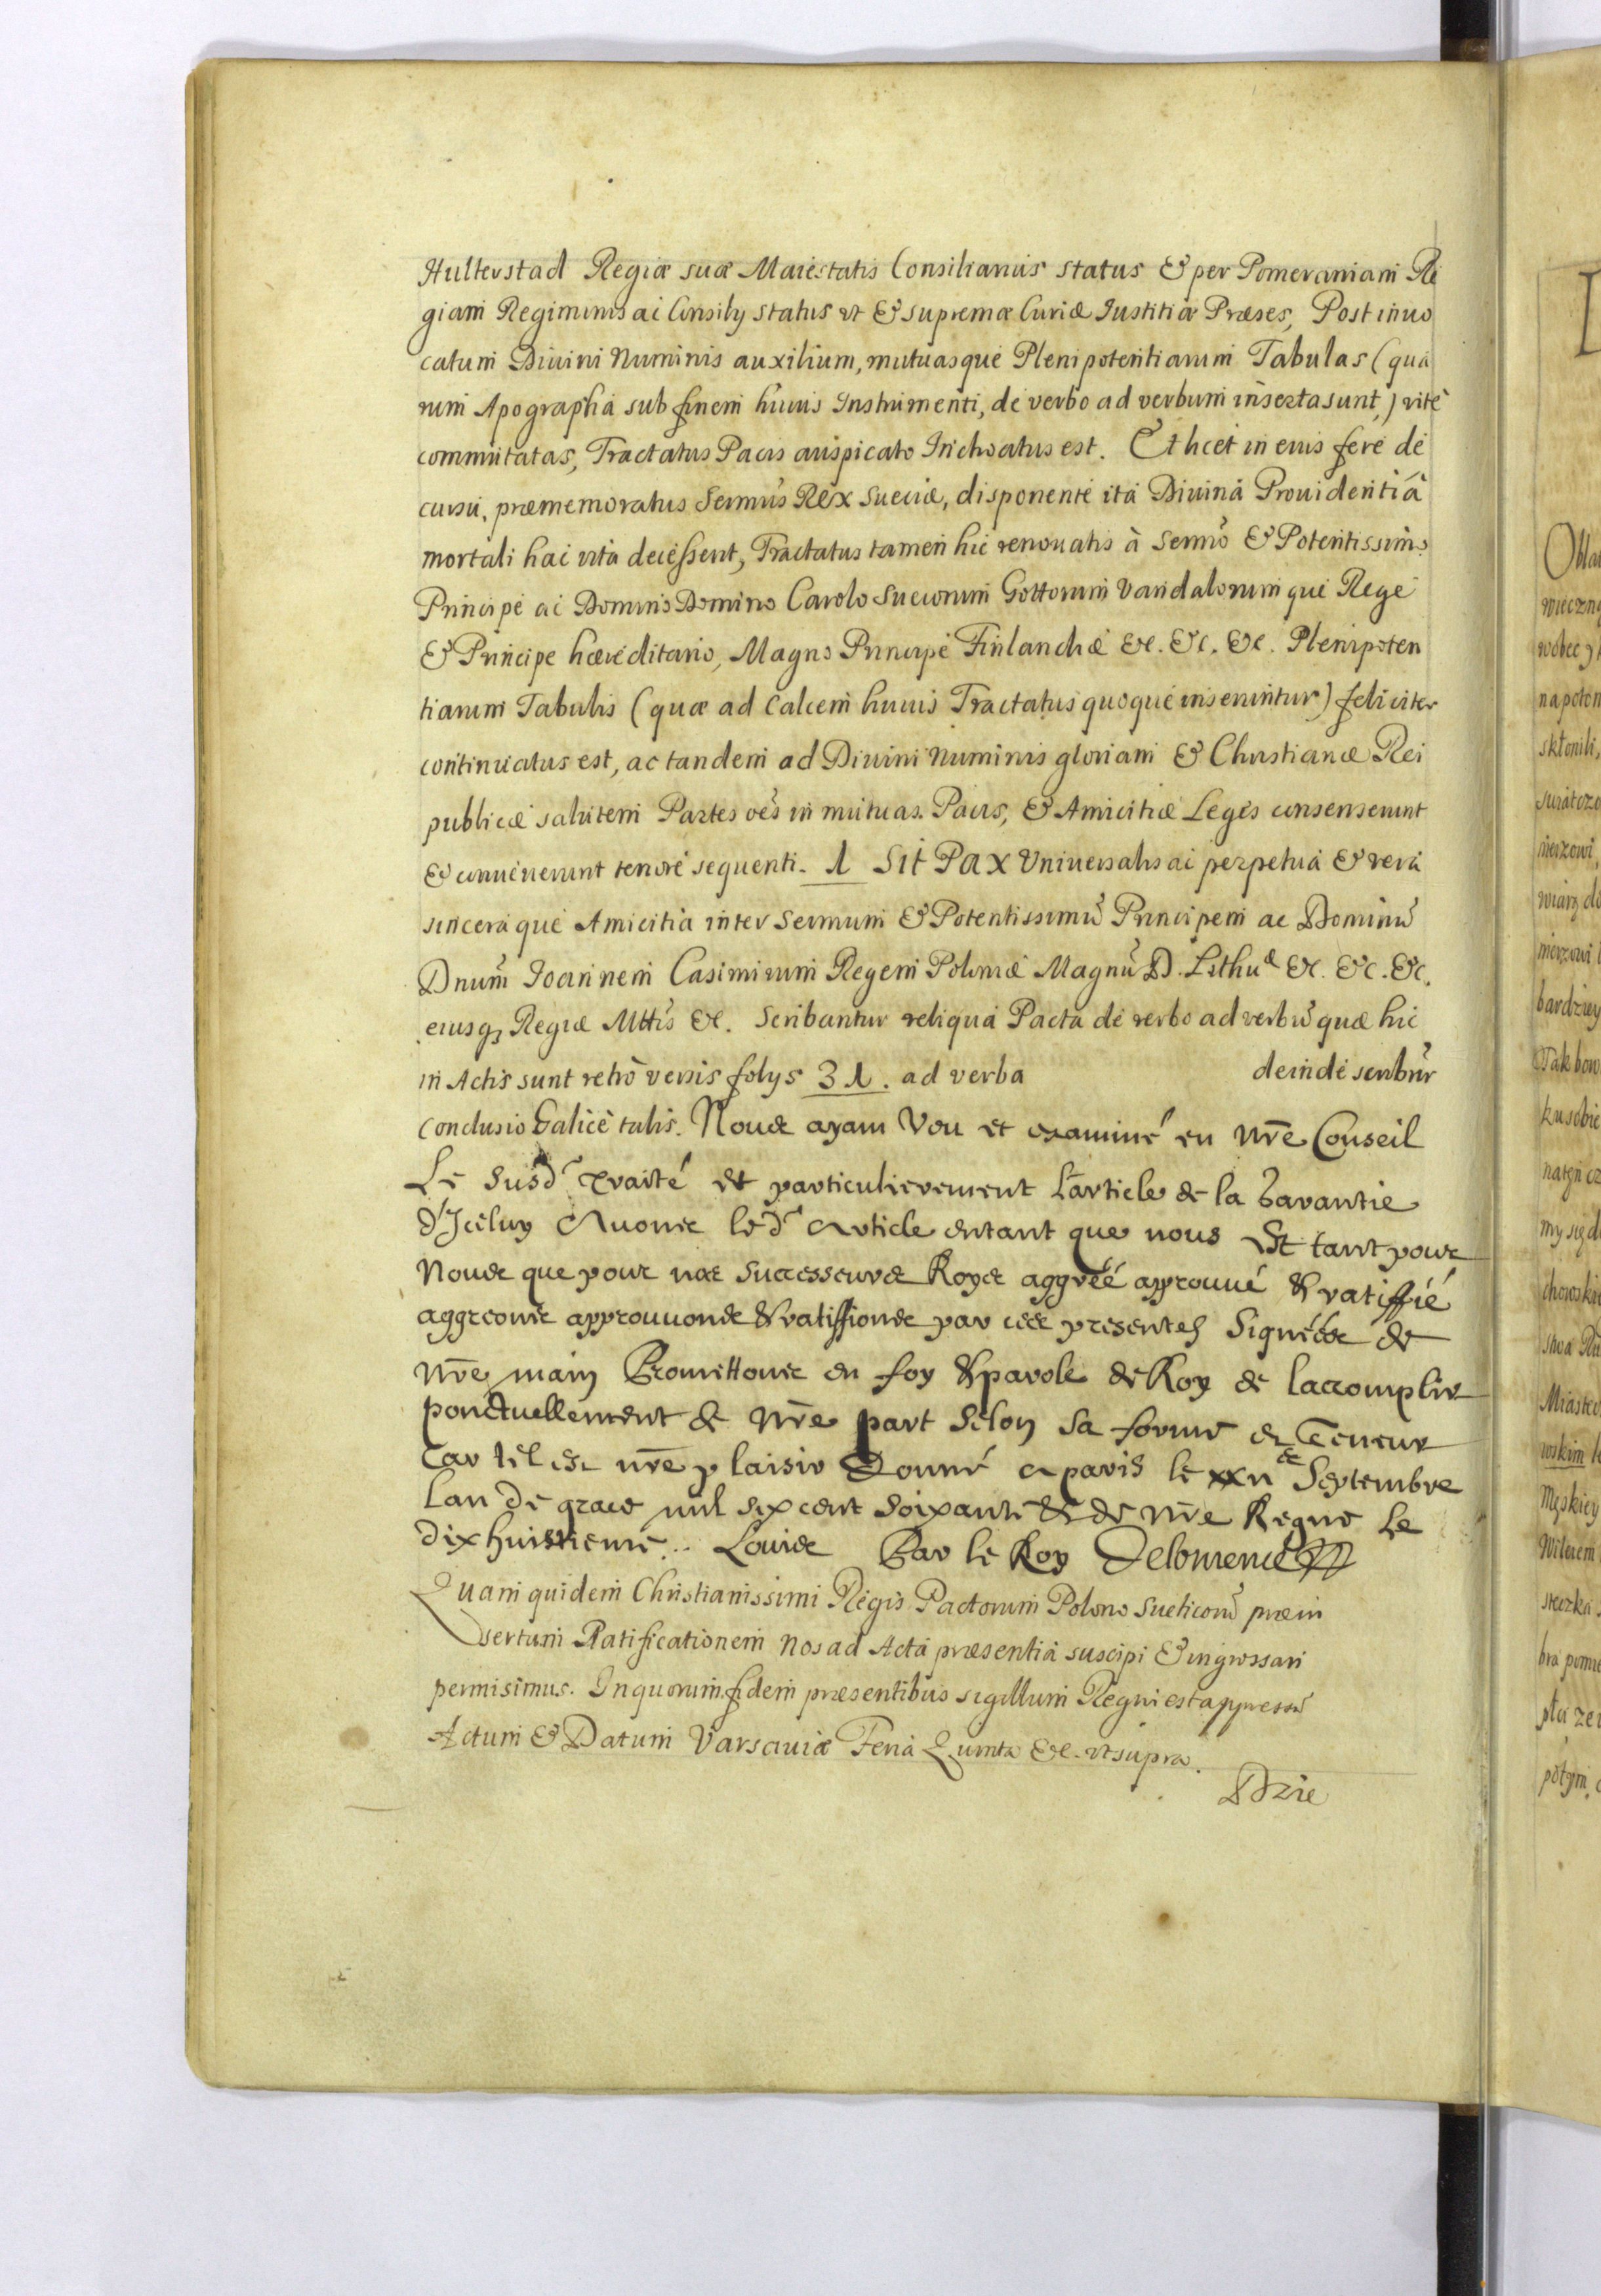 Hulterstad Regiæ suæ Maiestatis Consiliarius status & per Pomeraniam Re
giam Regiminis ac Consily status vt & supremæ Curiæ Iustitiæ Præses, Post inuo
catum Diuini Numinis auxilium, mutuasque Plenipotentiarum Tabulas (qua
rum Apographa sub finem huius Instrumenti, de verbo ad verbum inserta sunt,) ritè
commutatas, Tractatus Pacis auspicato Inchoatus est. Et licet in eius fere de
cursu, præmemoratus Sermus Rex Sueciæ, disponente ita Diuinâ Prouidentiâ
mortali hac vita decesserit, Tractatus tamen hic renouatis à Sermo & Potentissimo
Principe ac Domino Domino Carolo Suecorum Gottorum Vandalorumque Rege
& Principe hæreditario, Magno Principe Finlandiæ &c. &c. &c. Plenipoten
tiarum Tabulis (quæ ad calcem huius Tractatus quoque inseruntur) feliciter
continuatus est, ac tandem ad Diuini Numinis gloriam & Christianæ Rei
publicæ salutem Partes oēs in mutuas Pacis, & Amicitiæ Leges consenserunt
& conuenerunt tenore sequenti. 1 Sit Pax Vniuersalis ac perpetua & vera
sinceraque Amicitia inter Sermum & Potentissimū Principem ac Dominū
Dnum Ioannem Casimirum Regem Poloniæ Magnū D. Lithuæ &c. &c. &c.
eiusq; Regiæ Mttis &c. Scribantur reliqua Pacta de verbo ad verbū quæ hic
in Actis sunt retrò versis folys 31. ad verba deinde scribūr
conclusio Galicè talis. Nous ayant Veu et examiné en nr̃e Conseil
Le susd Traité et particulierement l'article de la Garantie
d'Iceluy Auons led Article entant que nous Est tant pour
Nous que pour nos Successeurs Roys aggréé approuué & ratiffié
aggreons approuuons & ratiffions par ces presentes Signées de
nr̃e main Promettons en foy & parole de Roy de laccomplir
ponctuellement de nr̃e part Selon sa forme et Teneur
Car tel est nr̃e plaisir Donné a paris le xxii Septembre
Lan de grace mil six cent soixante & de nr̃e Regne Le
dix huistieme. Louis Par le Roy Delomenie
Quam quidem Christianissimi Regis Pactorum Polono Sueticorū præin
sertam Ratificationem nos ad Acta præsentia suscipi & ingrossari
permisimus. In quorum fidem præsentibus sigillum Regni est appressū
Actum & Datum Varsauiæ Feria Quinta &c. vt supra.
Dzie